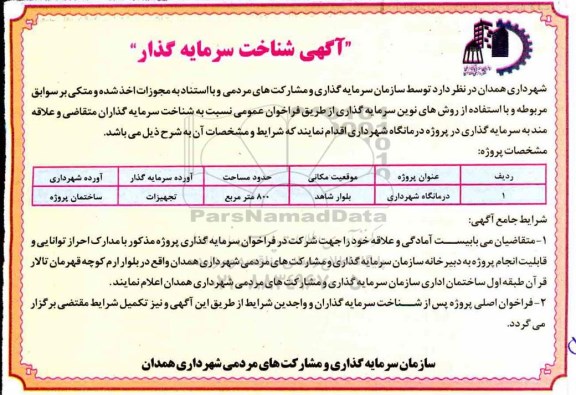 "آگهی شناخت سرمایه گذار"
شهرداری همدان در نظر دارد توسط سازمان سرمایه گذاری و مشارکت های مردمی و با استناد به مجوزات اخذ شده و متکی بر سوابق
مربوطه و با استفاده از روش های نوین سرمایه گذاری از طریق فراخوان عمومی نسبت به شناخت سرمایه گذاران متقاضی و علاقه
مند به سرمایه گذاری در پروژه درمانگاه شهرداری اقدام نمایند که شرایط و مشخصات آن به شرح ذیل می باشد.
مشخصات پروژه:
ردیف عنوان پروژه موقعیت مکانی حدود مساحت آورده سرمایه گذار آورده شهرداری
۱ درمانگاه شهرداری بلوار شاهد ۸۰۰ متر مربع تجهیزات ساختمان پروژه
ParsNamadData
شرایط جامع آگهی:
۱- متقاضیان می بایست آمادگی و علاقه خود را جهت شرکت در فراخوان سرمایه گذاری پروژه مذکور با مدارک احراز توانایی و
قابلیت انجام پروژه به دبیرخانه سازمان سرمایه گذاری و مشارکت های مردمی شهرداری همدان واقع در بلوار ارم کوچه قهرمان تالار
قرآن طبقه اول ساختمان اداری سازمان سرمایه گذاری و مشارکت های مردمی شهرداری همدان اعلام نمایند.
۲- فراخوان اصلی پروژه پس از شناخت سرمایه گذاران و واجدین شرایط از طریق این آگهی و نیز تکمیل شرایط مقتضی برگزار
می گردد.
سازمان سرمایه گذاری و مشارکت های مردمی شهرداری همدان